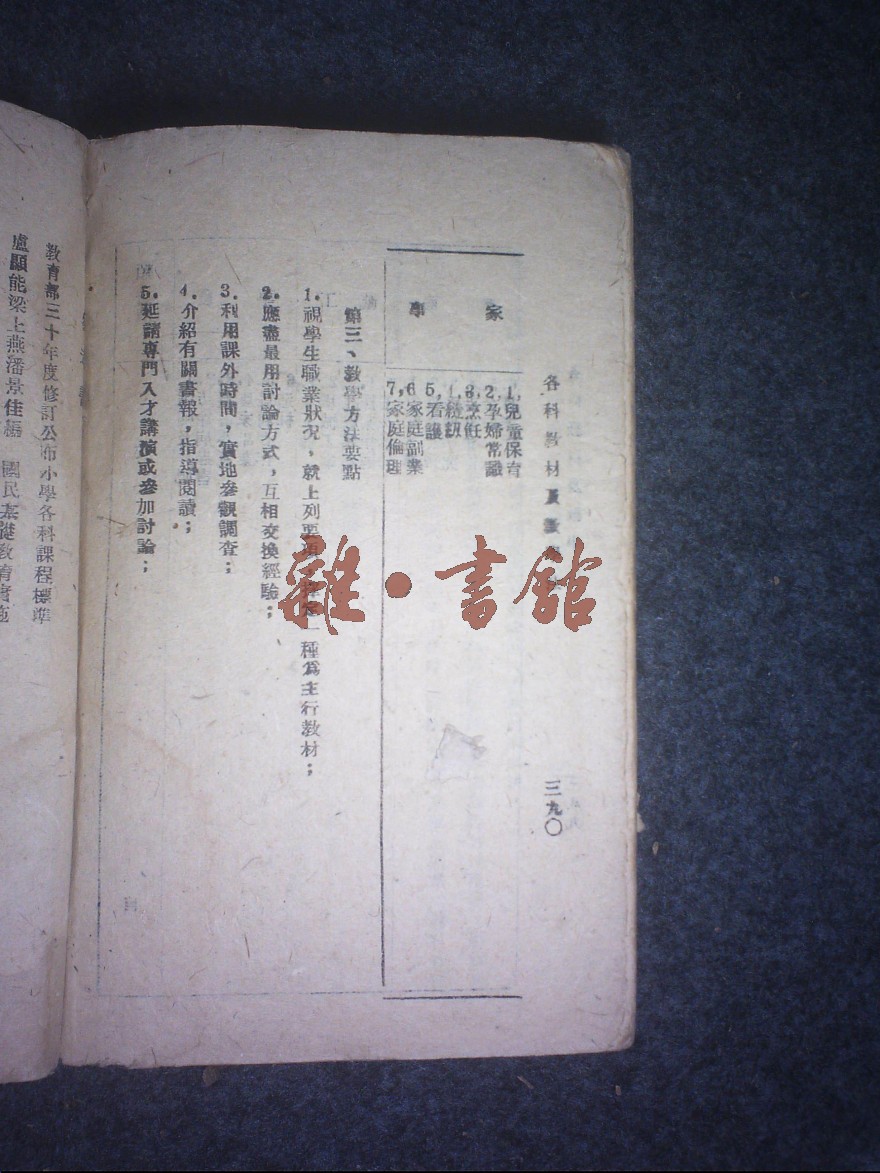 各科教材及教
三九〇
家事
1,兒童保育
2,孕婦常識
3,烹飪
4,紡織
5,看護
6,家庭副業
7,家庭倫理
第三、教學方法要點
1.視學生職業狀況,就上列要項,擇定一種爲主行教材;
2.應盡量用討論方式,互相交換經驗;
3.利用課外時間,實地參觀調查;
4.介紹有關書報,指導閱讀;
5.延請專門人才講演或參加討論;
教育部三十年度修訂公布小學各科課程標準
盧顯能梁上燕潘景佳編 國民基礎教育實施
雜·書館